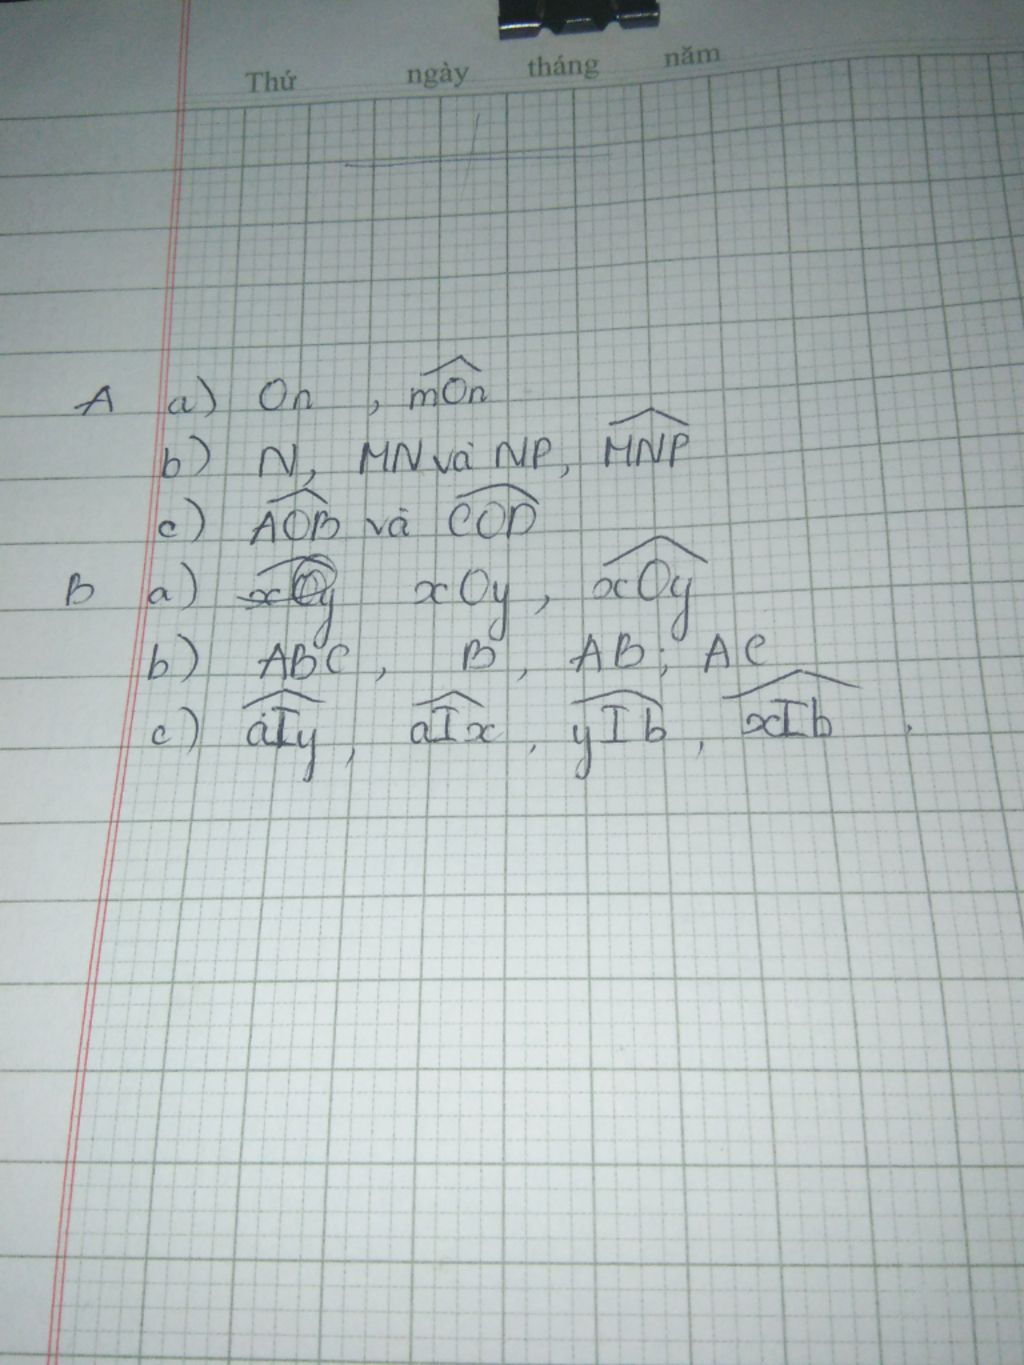 Thứ ngày tháng năm
A a) On , mOn
b) N, MN và NP, MNP
c) AOB và COD
B a) xOy xOy, xOy
b) ABC, B, AB; AC
c) aIy, aIx, yIb, xIb.